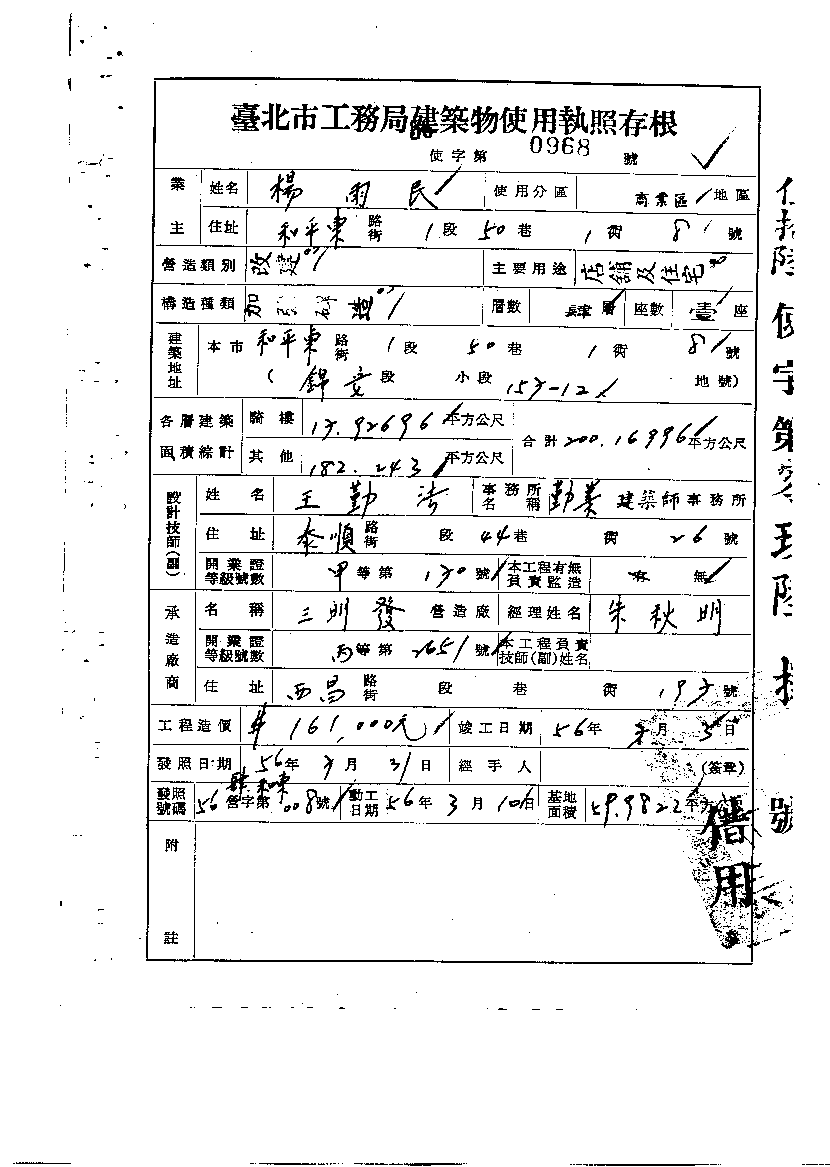 臺北市工務局建築物使用執照存根
56 使字第 0968 號
業主 姓名 楊雨民 使用分區 商業區 地區
住址 和平東 路街 1 段 50 巷 1 街 8 號
營造類別 改建 主要用途 店舖及住宅
構造種類 加強磚造 層數 肆層 座數 壹座
建築地址 本市 和平東 路街 1 段 50 巷 1 街 8 號
( 錦安 段 小段 153-12 地號)
各層建築面積綜計 騎樓 17.92696 平方公尺 合計 200.16996 平方公尺
其他 182.243 平方公尺
設計技師(副) 姓名 王勤 事務所名稱 勤業 建築師事務所
住址 泰順 路街 段 44 巷 街 26 號
開業證等級號數 甲等第 130 號 本工程有無負責監造 有 無
承造廠商 名稱 三明發 營造廠 經理姓名 朱秋明
開業證等級號數 丙等第 2651 號 本工程負責技師(副)姓名
住址 西昌 路街 段 巷 街 號
工程造價 161,000元 竣工日期 56年 月 日
發照日期 56年 月 31日 經手人 (簽章)
發照號碼 56 營字第 008號 動工日期 56年 3月 10日 基地面積 59.9822 平方公尺
附註
使字第零玖陸捌號
借用